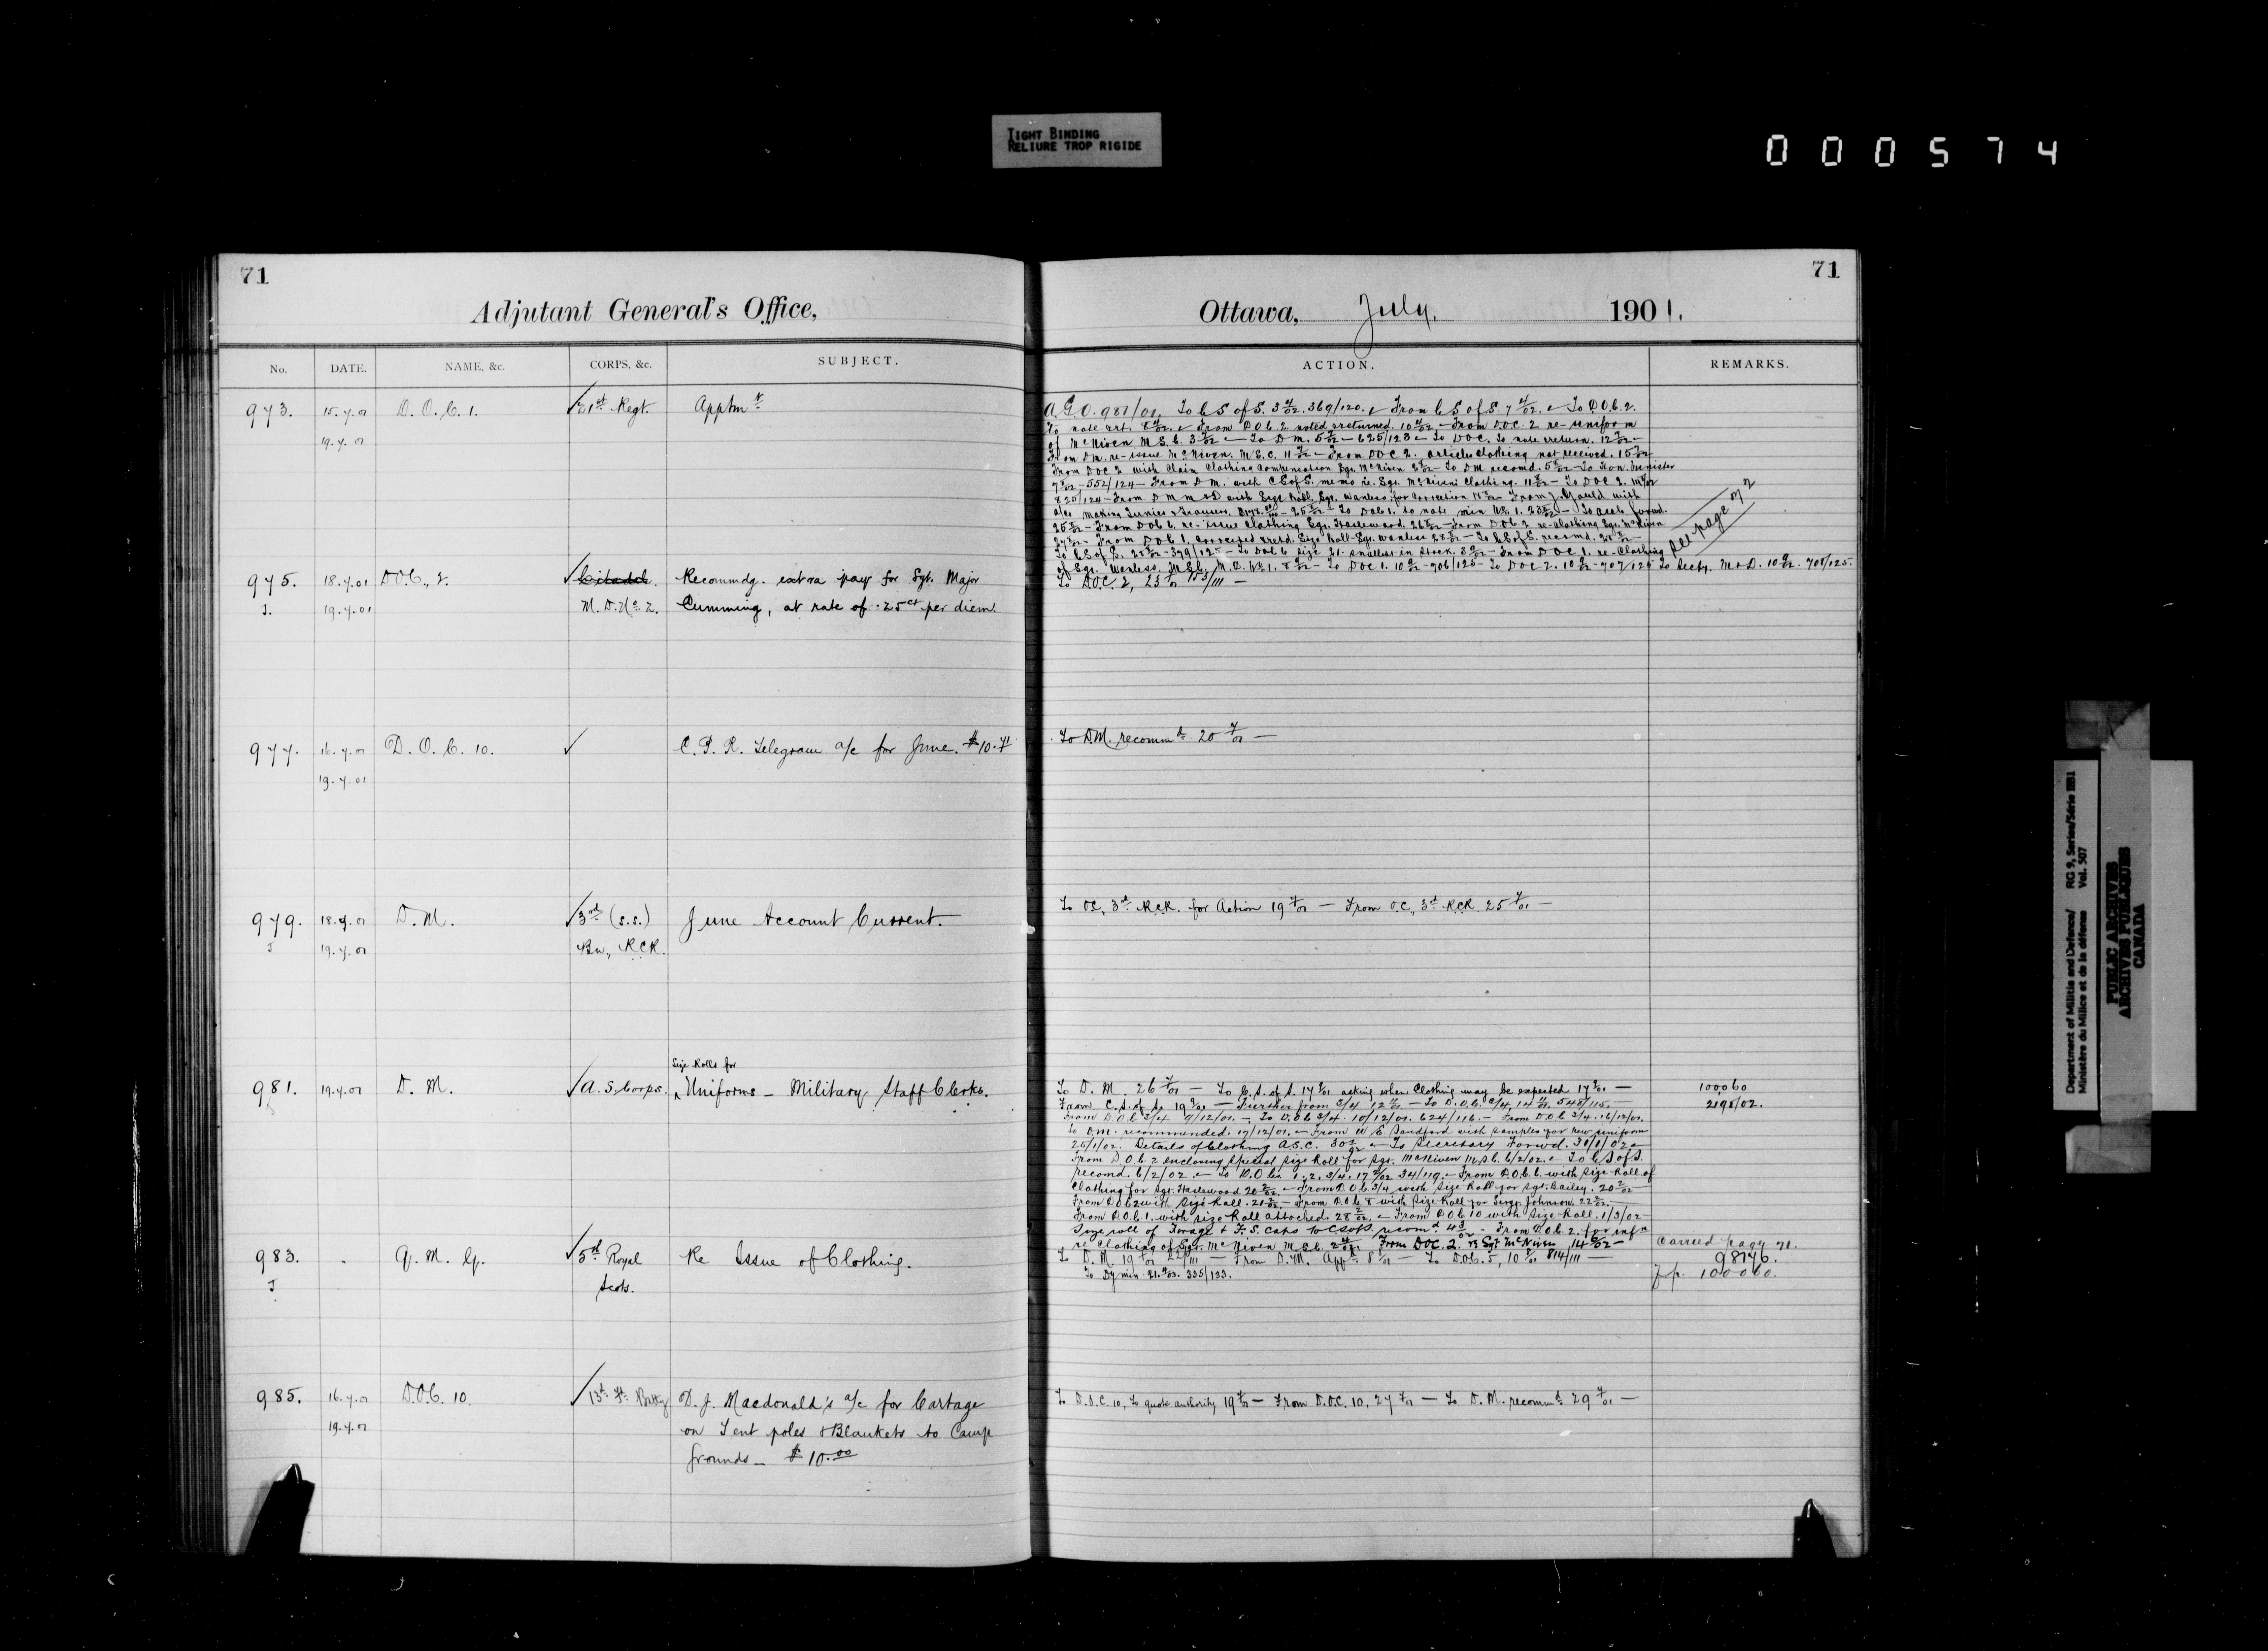 TIGHT BINDING
RELIURE TROP RIGIDE
000574
71
Adjutant General's Office,
No. DATE. NAME, &c. CORPS, &c. SUBJECT.
973. 15.7.01 D.O.C. 1. 21st Regt. Apptmt
19.7.01
975. 18.7.01 D.O.C., 2. Citadel. Recommdg. extra pay for Sgt. Major
J. 19.7.01 M.D. No. 2. Cumming, at rate of .25ct per diem.
977. 16.7.01 D.O.C. 10. C.P.R. Telegram a/c for June. $10.71
19.7.01
979. 18.7.01 D.M. 3rd (s.s.) June Account Current.
J 19.7.01 Bn., R.C.R.
Size Rolls for
981. 19.7.01 D.M. A.S. Corps. Uniforms - Military Staff Clerks.
983. Q.M.G. 5th Royal Re Issue of Clothing.
J Scots.
985. 16.7.01 D.O.C. 10. 13th Fd. Batty D.J. Macdonald's a/c for Cartage
19.7.01 on Tent poles & Blankets to Camp
Grounds - $10.00
71
Ottawa, July. 1901.
ACTION. REMARKS.
A.G.O. 981/01. To C S of S. 3 4/02. 369/120. From C S of S. 7 4/02. To D.O.C. 2.
From D.O.C. 2 noted & returned. 10 4/02 - From D.O.C. 2 re-uniform
of McNiven M.S.C. - To D.M. - 625/123 - To DOC. to note & return.
From D.M. re-issue McNiven. M.S.C. - From DOC 2. articles clothing not received.
From DOC 2 with Claim Clothing Compensation Sgt. McNiven - To DM recomd. - To Hon. Minister
552/124 - From D.M. with C S of S. memo re. Sgt. McNiven's Clothing. - To DOC 2.
825/124 - From with Size Roll, Sgt. Wanless. for correction - From J. Gauld with
a/c making Tunics & Trousers. - To DOC 1. to note min No. 1.
From DOC 6. re-issue clothing Sgt. Hazlewood. - From DOC 2 re-clothing Sgt. McNiven
From DOC 1. corrected & retd. Size Roll - Sgt. Wanless - To C S of S. recomd.
To C S of S. 379/125 - To DOC 6 size 21. smallest in stock. - From DOC 1. re-Clothing
of Sgt. Wanless. M.S.C. - To DOC 1. 706/125 - To DOC 2. 707/125 To Secty. M & D. 708/125.
See page 72
To DOC. 2, 23 7/01 153/111 -
To DM. recommd 20 7/01 -
To OC, 3rd R.C.R. for Action 19 7/01 - From O.C., 3rd RCR. 25 7/01 -
To D.M. 26 7/01 - To C.S. of S. 17 9/01 asking when clothing may be expected 17 9/01 - 100060
From C.S. of S. 19 9/01 - Further from 3/4 - To D.O.C. 3/4, 548/115. - 2198/02.
From D.O.C 3/4. 9/12/01. - To D.O.C 3/4. 10/12/01. 624/116. - From D.O.C 3/4. 16/12/01.
To D.M. recommended. 17/12/01. - From W.E. Sandford with samples for new uniform
25/1/02. Details of Clothing A.S.C. - To Secretary Forwd. 31/1/02 -
From D.O.C. 2 enclosing special size Roll for Sgt. McNiven M.S.C. 6/2/02. - To C.S. of S.
recomd. 6/2/02 - To D.O.C's. 1. 2. 3/4. 17 2/02 34/119. - From D.O.C. 6 with Size Roll of
Clothing for Sgt. Hazlewood 20 2/02 - From D.O.C. 3/4 with Size Roll for Sgt. Bailey. 20 2/02 -
From D.O.C. 2 with Size Roll. 21 2/02 - From D.O.C. 8 with Size Roll for Sergt. Johnson. 22 2/02.
From D.O.C 1. with Size Roll attached. 28 2/02 - From D.O.C 10 with Size Roll. 1/3/02 -
Size roll of Forage & F.S. Caps to C S of S. recomd 4 3/02 - From D.O.C. 2. for infn
re Clothing of Sgt. McNiven M.S.C. From DOC. 2. re Sgt McNiven - Carried page 71.
To D.M. 19 7/01 22/111 - From D.M. Appd. 8 8/01 - To D.O.C. 5, 10 8/01 814/111 - 98746.
335/133. 100060.
To D.O.C. 10, to quote authority 19 7/01 - From D.O.C. 10, 27 7/01 - To D.M. recommd 29 7/01 -
Department of Militia and Defence/ RG 9, Series/Série IIB1
Ministère du Milice et de la défense Vol. 507
PUBLIC ARCHIVES
ARCHIVES PUBLIQUES
CANADA